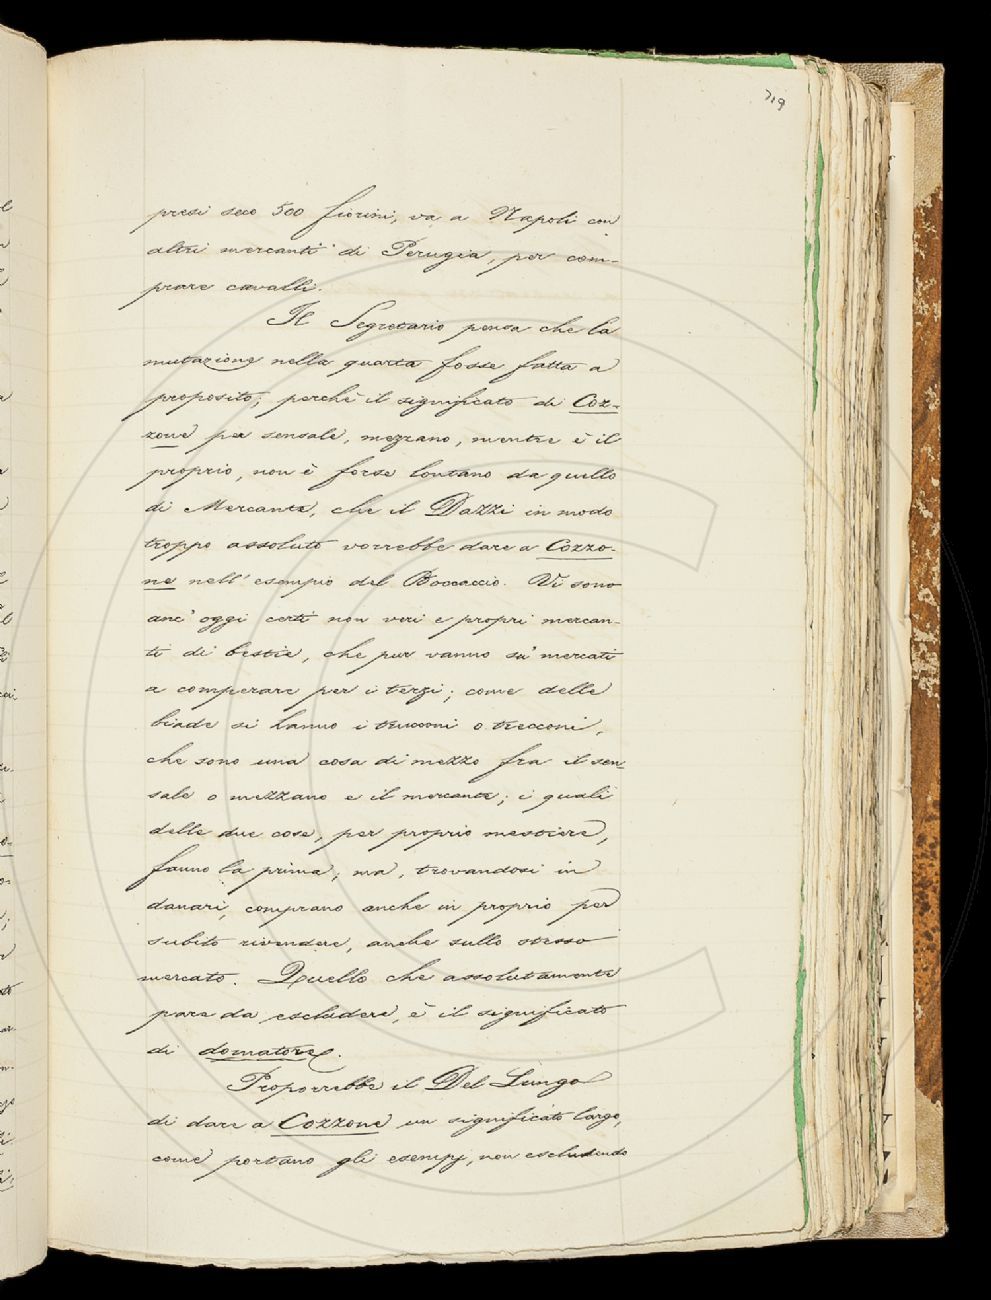 719
presi seco 500 fiorini, va a Napoli con
altri mercanti di Perugia, per com-
prare cavalli.
Il Segretario pensa che la
mutazione nella quarta fosse fatta a
proposito; perchè il significato di Coz-
zone per sensale, mezzano, mentre è il
proprio, non è forse lontano da quello
di Mercante, che il Dazzi in modo
troppo assoluto vorrebbe dare a Cozzo-
ne nell'esempio del Boccaccio. Vi sono
anc'oggi certi non veri e propri mercan-
ti di bestie, che pur vanno su' mercati
a comperare per i terzi; come delle
biade si hanno i trucconi o trecconi,
che sono una cosa di mezzo fra il sen-
sale o mezzano e il mercante; i quali
delle due cose, per proprio mestiere,
fanno la prima; ma, trovandosi in
danari, comprano anche in proprio per
subito rivendere, anche sullo stesso
mercato. Quello che assolutamente
pare da escludere, è il significato
di domatore.
Proporrebbe il Del Lungo
di dare a Cozzone un significato largo,
come portano gli esempj, non escludendo